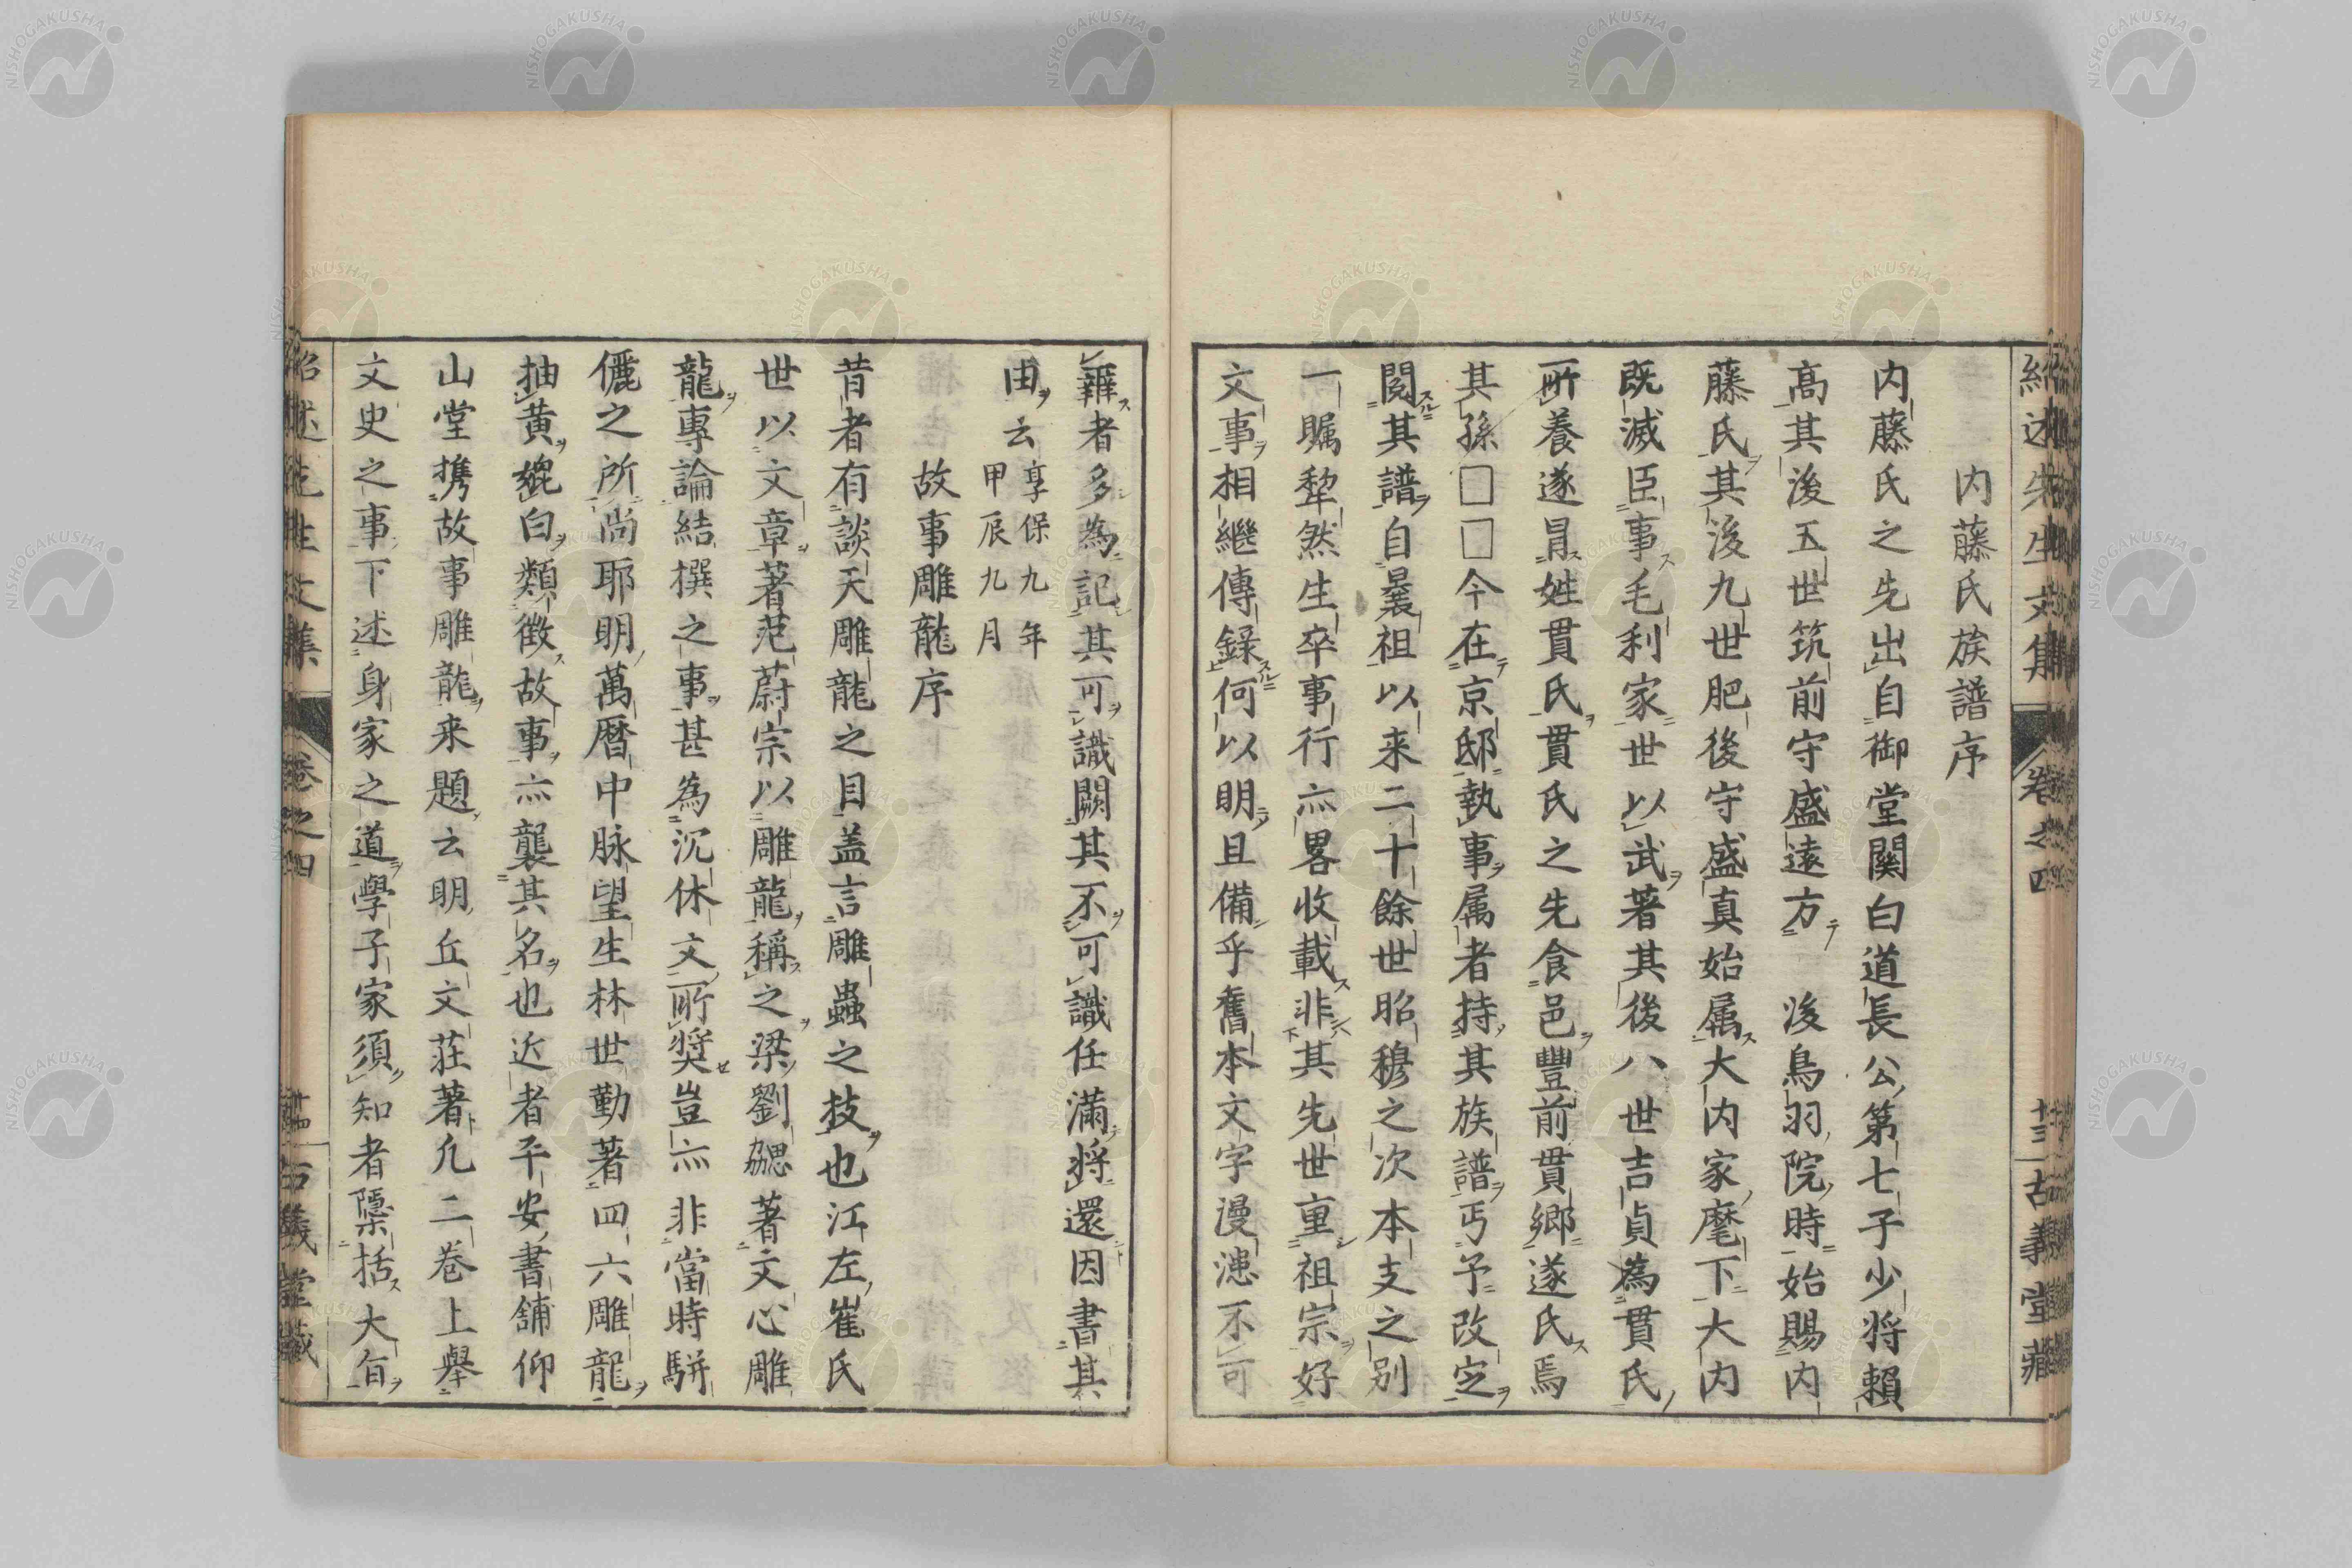 内藤氏族譜序
内藤氏之先出自御堂關白道長公第七子少将頼
高其後五世筑前守盛遠方　後鳥羽院時始賜内
藤氏其後九世肥後守盛真始属大内家麾下大内
既滅臣事毛利家世以武著其後八世吉貞為貫氏
所養遂冐姓貫氏貫氏之先食邑豐前貫郷遂氏焉
其孫□□今在京邸執事属者持其族譜丐予改定
閲其譜自曩祖以来二十餘世昭穆之次本支之別
一矚犂然生卒事行亦畧收載非其先世重祖宗好
文事相繼傳録何以明且備乎舊本文字漫漶不可
者多為記其可識闕其不可識任滿将還因書其
由云享保九年
甲辰九月
故事雕龍序
昔者有談天雕龍之目盖言雕蟲之技也江左崔氏
世以文章著范蔚宗以雕龍稱之梁劉勰著文心雕
龍專論結撰之事甚為沉休文所奨豈亦非當時駢
儷之所尚耶明萬暦中脉望生林世勤著四六雕龍
抽黄媲白類徴故事亦襲其名也近者平安書舖仰
山堂携故事雕龍来題云明丘文荘著凢二巻上舉
文史之事下述身家之道學子家須知者檃括大㫖
紹述先生文集
巻之四
十三
古義堂藏